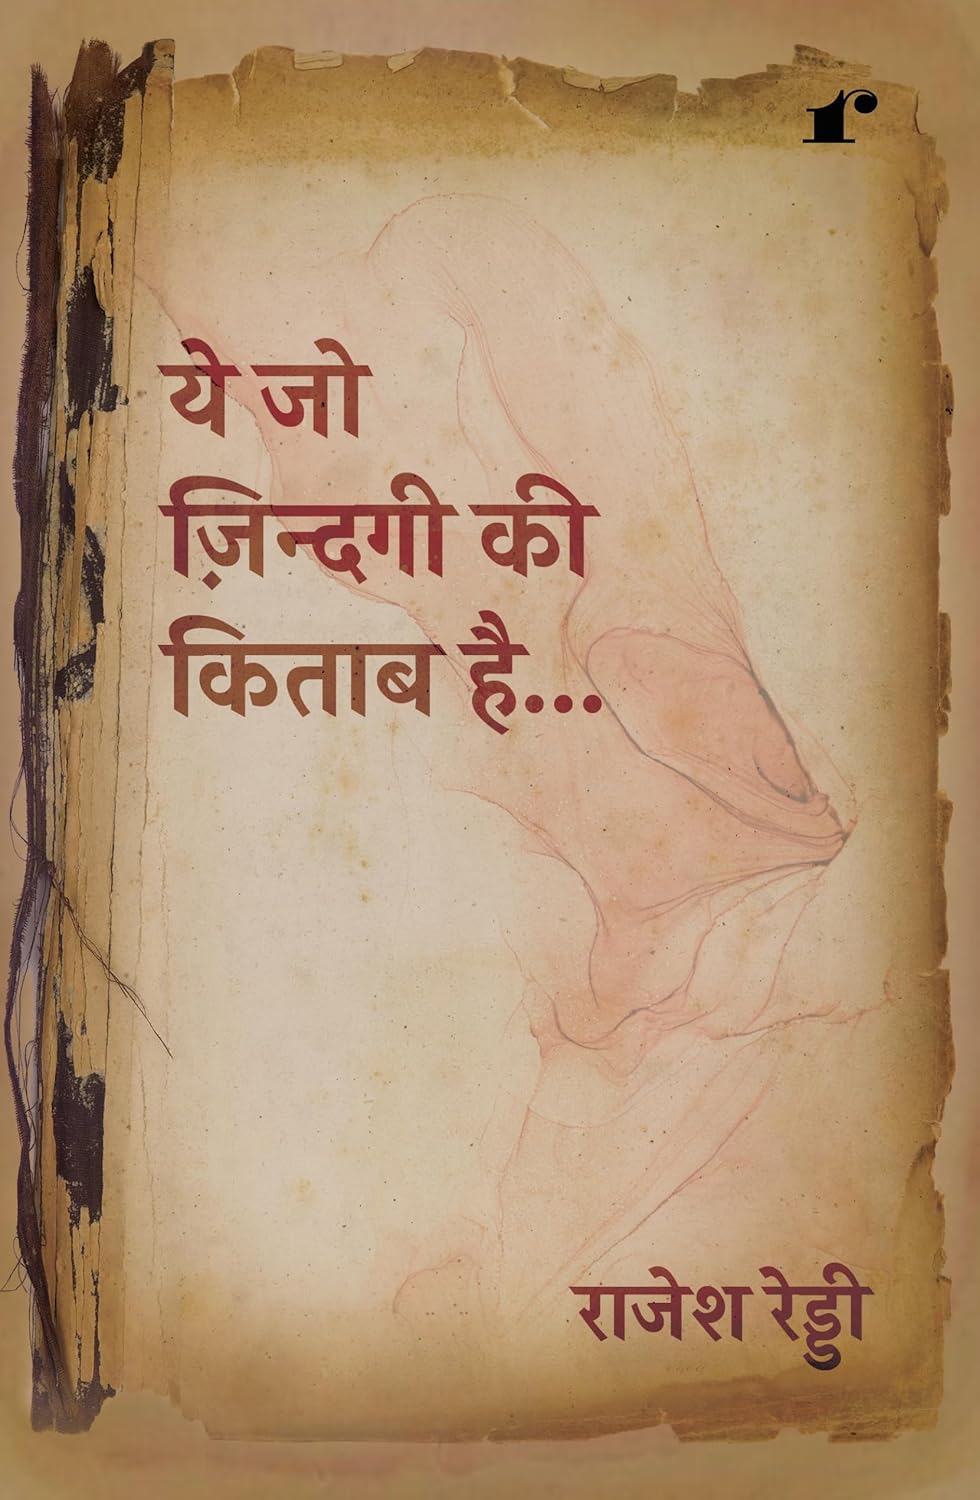 r
ये जो
ज़िन्दगी की
किताब है...
राजेश रेड्डी